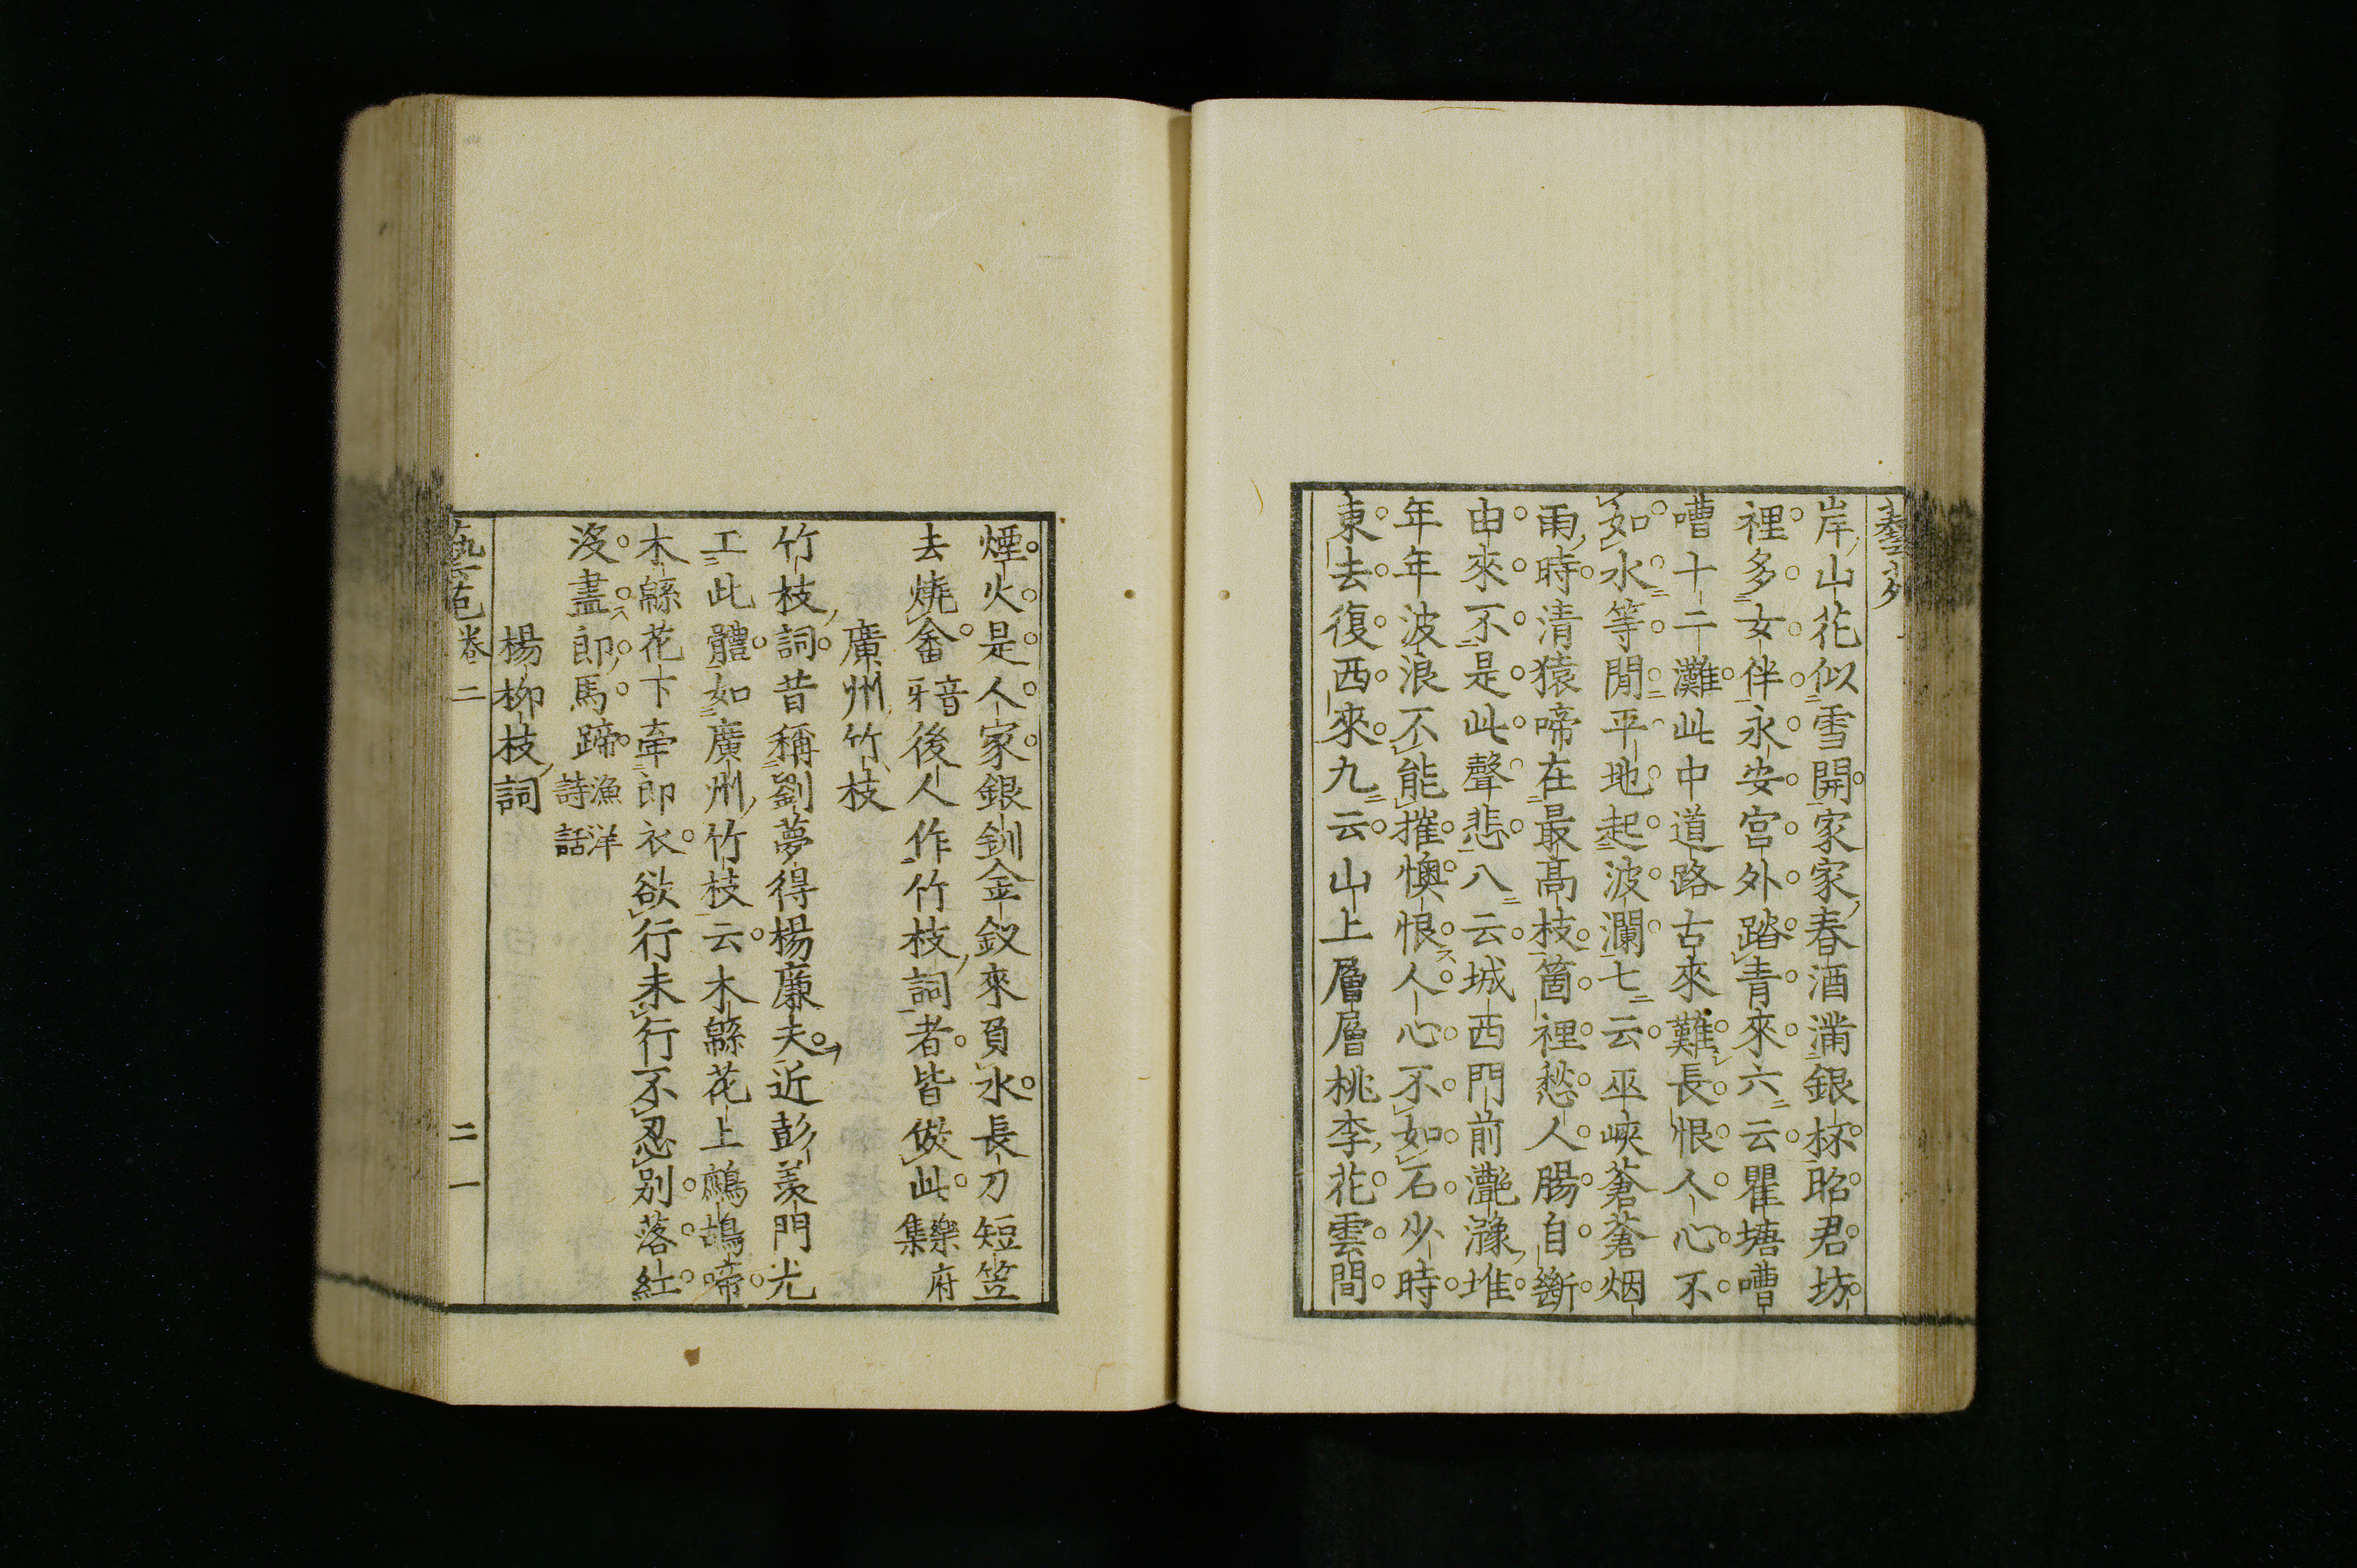 岸山花似雪開家家春酒滿銀杯昭君坊
裡多女伴永安宮外踏青來六云瞿塘嘈
嘈十二灘此中道路古來難長恨人心不
如水等閒平地起波瀾七云巫峽蒼蒼烟
雨時清猿啼在最高枝箇裡愁人腸自斷
由來不是此聲悲八云城西門前灩澦堆
年年波浪不能摧懊恨人心不如石少時
東去復西來九云山上層層桃李花雲間
煙火是人家銀釧金釵來負水長刀短笠
去燒畬音牙後人作竹枝詞者皆倣此樂府集
廣州竹枝
竹枝詞昔稱劉夢得楊廉夫近彭羨門尤
工此體如廣州竹枝云木緜花上鷓鴣啼
木緜花下牽郎衣欲行未行不忍別落紅
沒盡郎馬蹄漁洋詩話
楊柳枝詞
藝苑 卷二 二一